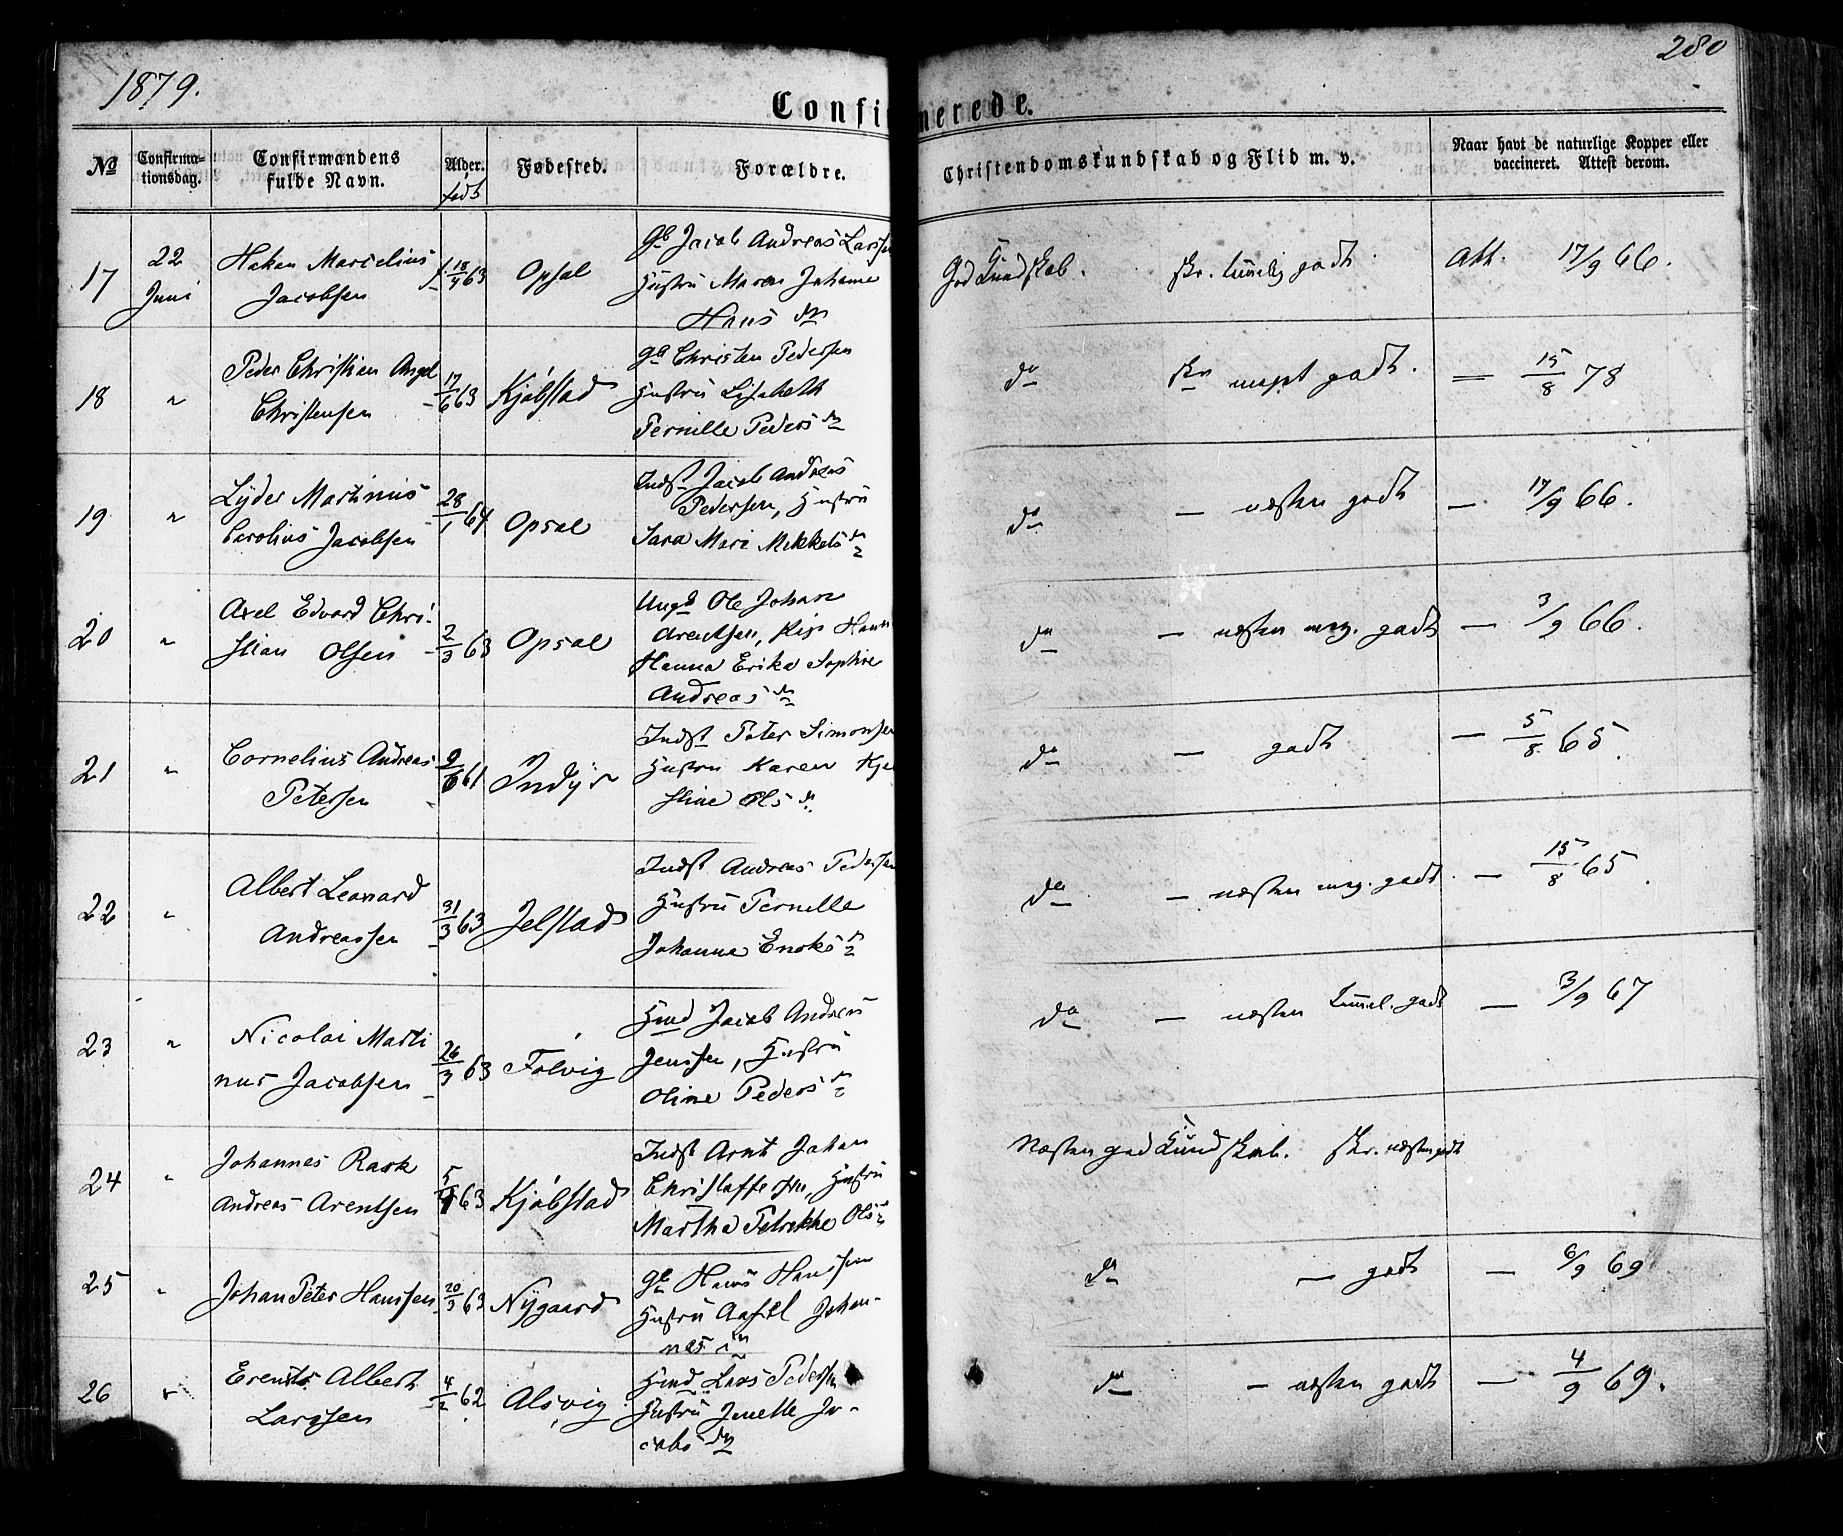 1879.
280
Confirmerede.
No
Confirma-
tionsdag.
Confirmandens
fulde Navn.
Alder.
født
Fødested.
Forældre.
Christendomskundskab og Flid m. v.
Naar havt de naturlige Kopper eller
vaccineret. Attest derom.
17 22 Juni
Hakan Marselius
Jacobsen
18/4 63 Opsal
Gb Jacob Andreas Larssen
Hustru Maren Johanna
Hans dr
God Kundskab. skr. temmelig godt Att. 17/9 66.
18 "
Peder Christian Angel
Christensen
17/6 63 Kjøbstad
Gb Christen Pedersen
Hustru Lisabeth
Pernille Peders dr
do skr meget godt. — 15/8 78
19 "
Lyder Martinus
Carolius Jacobsen
28/1 64 Opsal
Indst Jacob Andreas
Pedersen, Hustru
Sara Mari Mikkels dr
do — næsten godt — 17/9 66.
20 "
Axel Edvard Chri-
stian Olsen
2/3 63 Opsal
Ungk Ole Johan
Arentsen, Pige
Hanna Erika Sophie
Andreas dr
do — næsten meg. godt — 3/9 66.
21 "
Cornelius Andreas
Petersen
9/6 61 Indyr
Indst Peter Simonsen
Hustru Karen Kje
stine Ols dr.
do — godt — 5/8 65.
22 "
Albert Leonard
Andreassen
31/3 63 Jelstad
Indst Andreas Pedersen
Hustru Pernille
Johanna Enoks dr
do — næsten meg. godt — 15/8 65.
23 "
Nicolai Marti
nus Jacobsen
26/3 63 Følvig
Hmd Jacob Andreas
Jenssen, Hustru
Oline Peders dr
do — næsten temmel. godt — 3/9 67
24 "
Johannes Rask
Andreas Arentsen
5/4 63 Kjøbstad
Indst Arnt Johan
Christoffersen, Hustru
Martha Petrikke Ols dr
Næsten god Kundskab. skr. næsten godt
25 "
Johan Peter Hanssen
20/3 63 Nygaard
Gb Hans Hanssen
Hustru Aasel Johan-
nes dr
do — godt — 6/9 69
26 "
Erents Albert
Larssen
4/2 62 Alsvig
Hmd Lars Pedersen
Hustru Jenette Ja-
cobs dr
do — næsten godt — 4/9 69.